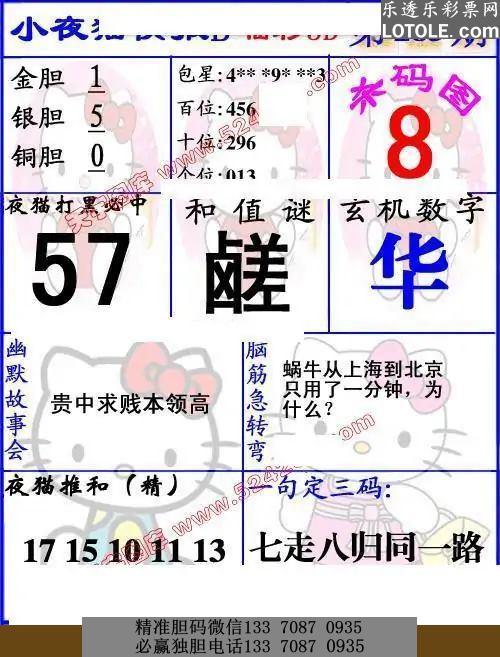 乐透乐彩票网
LOTOLE.COM
小夜猫
福彩3D
第
期
金胆 1
银胆 5
铜胆 0
包星:4** *9* **3
百位:456
十位:296
个位:013
来码图
8
夜猫打黑必中
57
和值谜
鹾
玄机数字
华
幽默故事会
贵中求贱本领高
脑筋急转弯
蜗牛从上海到北京
只用了一分钟，为
什么?
夜猫推和（精）
17 15 10 11 13
一句定三码:
七走八归同一路
精准胆码微信133 7087 0935
必赢独胆电话133 7087 0935